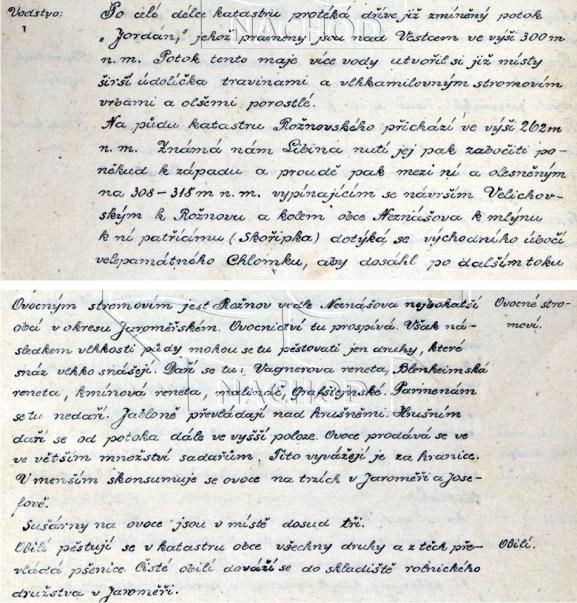 Vodstvo:
Po celé délce katastru protéká dříve již zmíněný potok
„Jordan,“ jehož prameny jsou nad Vestcem ve výši 300 m
n. m. Potok tento maje více vody utvořil si již místy
širší údolíčka travinami a vlhkamilovným stromovím
vrbami a olšemi porostlé.
Na půdu katastru Rožnovského přichází ve výši 262 m
n. m. Známá nám Libina nutí jej pak zabočiti po-
někud k západu a proudě pak mezi ní a olesněným
na 308-318 m n. m. vypínajícím se návrším Velichov-
ským k Rožnovu a kolem obce Neznášova k mlýnu
k ní patřícímu (Skořipka) dotýká se východního úbočí
velepamátného Chlomku, aby dosáhl po dalším toku
Ovocným stromovím jest Rožnov vedle Neznášova nejbohatší
obcí v okresu Jaroměřském. Ovocnictví tu prospívá. Však ná-
sledkem vlhkosti půdy mohou se tu pěstovati jen druhy, které
snáz vlhko snášejí. Daří se tu: Vagnerova reneta, Blenheimská
reneta, kmínová reneta, malináč, Grafštejnské Parmenám
se tu nedaří. Jabloně převládají nad hrušněmi. Hrušním
daří se od potoka dále ve vyšší poloze. Ovoce prodává se ve
ve větším množství sadařům. Tito vyvážejí je za hranice.
V menším skonsumuje se ovoce na trzích v Jaroměři a Jose-
fově.
Sušárny na ovoce jsou v místě dosud tři.
Obilí pěstují se v katastru obce všechny druhy a z těch pře-
vládá pšenice. Čisté obilí dováží se do skladiště rolnického
družstva v Jaroměři.
Ovocné stro-
moví.
Obilí.
NACHOD
NACHOD